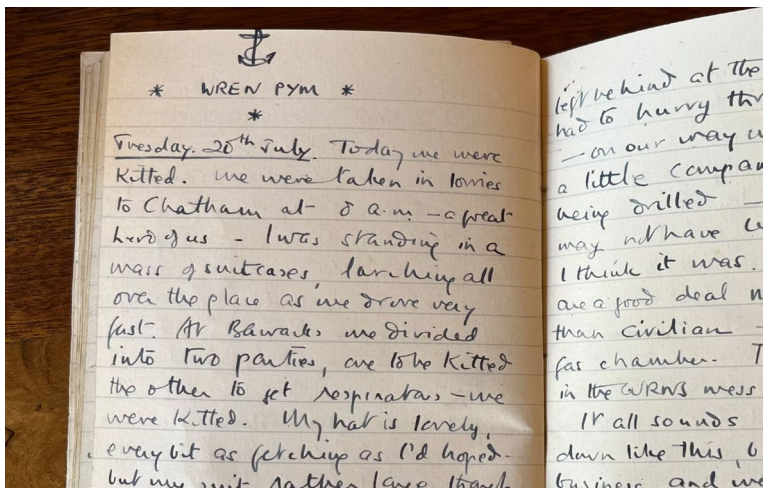 * WREN PYM *
*
Tuesday. 20th July. Today we were
Kitted. We were taken in lorries
to Chatham at 8 a.m. – a great
herd of us – I was standing in a
mass of suitcases, lurching all
over the place as we drove very
fast. At Barracks we divided
into two parties, one to be Kitted
the other to get respirators – we
were Kitted. My hat is lovely,
every bit as fetching as I'd hoped.
but my suit rather large though
left behind at the
had to hurry thr
– on our way
a little compan
being drilled –
may not have
I think it was.
are a good deal
than civilian –
gas chamber. T
in the WRNS mess
It all sounds
down like this, b
business and we